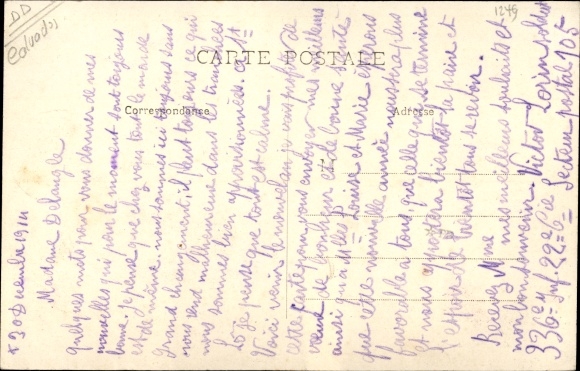 DD
Calvados
1249
CARTE POSTALE
Correspondance
Adresse
30 Decembre 1914
Madame Delaugle
quelques mots pour vous donner de mes
nouvelles qui pour le moment sont toujours
bonne. Je pense que chez vous tout le monde
est de même. nous sommes ici toujours sans
grand changement, il pleut toujours ce qui
nous rend malheureux dans les tranchées
nous sommes bien approvisionnés. c'est=
Le 15 je pense que tout est calme.
Voici venir le nouvel an je vous profite de
cette carte pour vous envoyer mes meilleurs
vœux de bonheur et de bonne santé
ainsi qu'a Mlles Louise et Marie espérons
que cette nouvelle année nous sera plus
favorable a tous, que celle qui se termine
et nous apportera bientôt la paix et
l'espoir de bientôt tous se revoir.
Recevez Mme mes meilleurs souhaits et
mon bon souvenir. Victor Louin soldat
336e Inf. 22e Cie Secteur postal 105